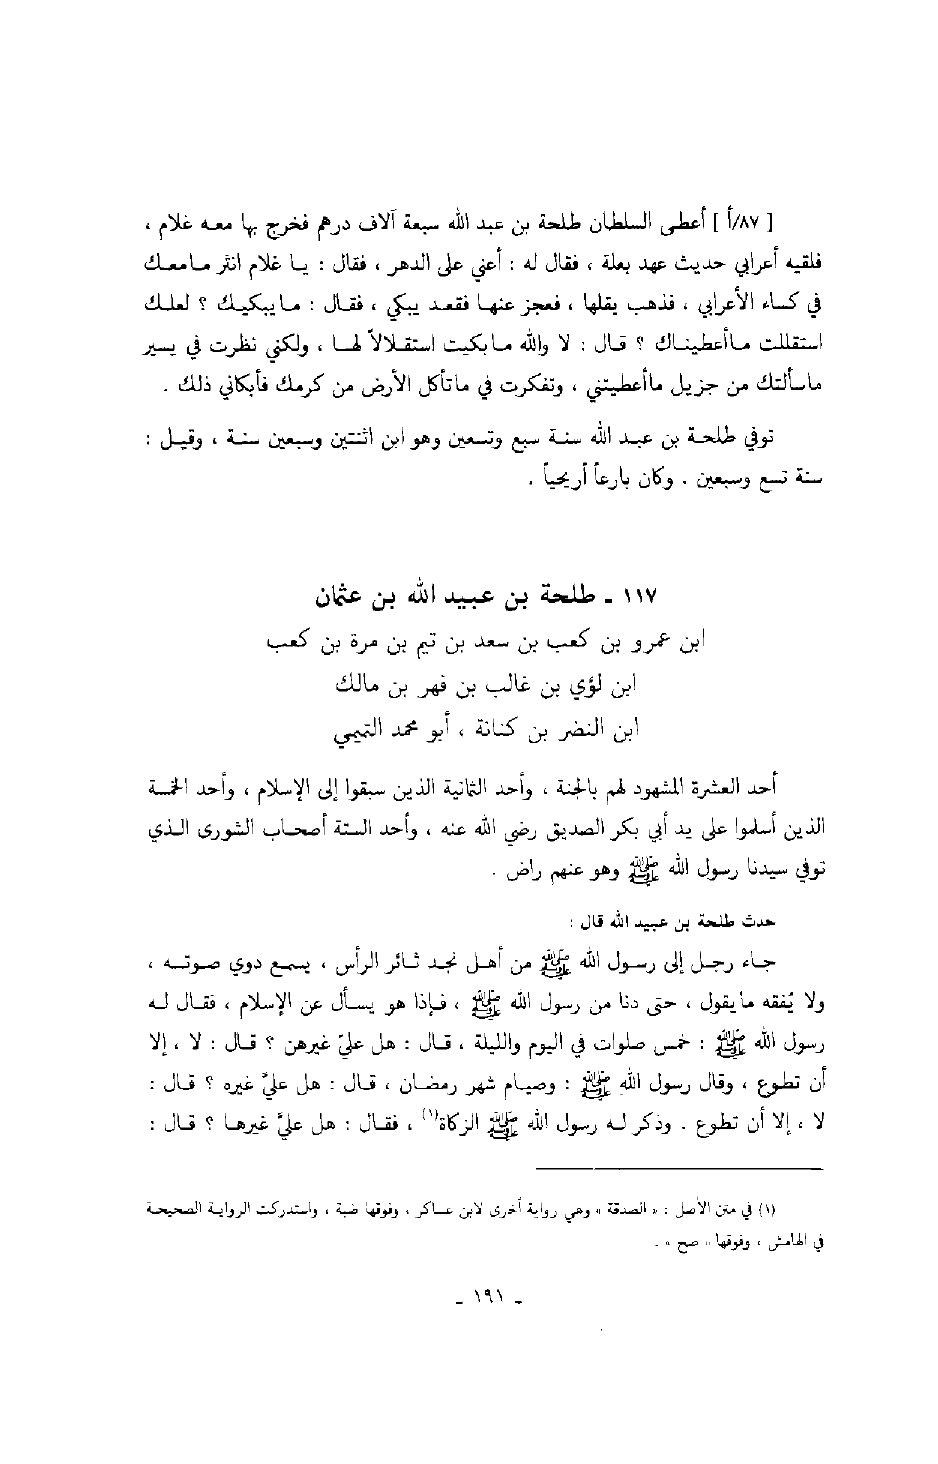 [ ٨٧/أ ] أعطى السلطان طلحة بن عبد الله سبعة آلاف درهم فخرج بها معه غلام ،
فلقيه أعرابي حديث عهد بعلة ، فقال له : أعني على الدهر ، فقال : يا غلام انثر مامعك
في كساء الأعرابي ، فذهب يقلها ، فعجز عنها فقعد يبكي ، فقال : مايبكيك ؟ لعلك
استقللت ماأعطيناك ؟ قال : لا والله مابكيت استقلالاً لها ، ولكني نظرت في يسير
ماسألتك من جزيل ماأعطيتني ، وتفكرت في ماتأكل الأرض من كرمك فأبكاني ذلك .
توفي طلحة بن عبد الله سنة سبع وتسعين وهو ابن اثنتين وسبعين سنة ، وقيل :
سنة تسع وسبعين . وكان بارعاً أريحياً .
١١٧ ـ طلحة بن عبيد الله بن عثمان
ابن عمرو بن كعب بن سعد بن تيم بن مرة بن كعب
ابن لؤي بن غالب بن فهر بن مالك
ابن النضر بن كنانة ، أبو محمد التيمي
أحد العشرة المشهود لهم بالجنة ، وأحد الثمانية الذين سبقوا إلى الإسلام ، وأحد الخمسة
الذين أسلموا على يد أبي بكر الصديق رضي الله عنه ، وأحد الستة أصحاب الشورى الذي
توفي سيدنا رسول الله ﷺ وهو عنهم راض .
حدث طلحة بن عبيد الله قال :
جاء رجل إلى رسول الله ﷺ من أهل نجد ثائر الرأس ، يسمع دوي صوته ،
ولا يُفقه مايقول ، حتى دنا من رسول الله ﷺ ، فإذا هو يسأل عن الإسلام ، فقال له
رسول الله ﷺ : خمس صلوات في اليوم والليلة ، قال : هل عليّ غيرهن ؟ قال : لا ، إلا
أن تطوع ، وقال رسول الله ﷺ : وصيام شهر رمضان ، قال : هل عليّ غيره ؟ قال :
لا ، إلا أن تطوع . وذكر له رسول الله ﷺ الزكاة(١) ، فقال : هل عليّ غيرها ؟ قال :
(١) في متن الأصل : « الصدقة » وهي رواية أخرى لابن عساكر ، وفوقها ضبة ، واستدركت الرواية الصحيحة
في الهامش ، وفوقها « صح » .
ـ ١٩١ ـ